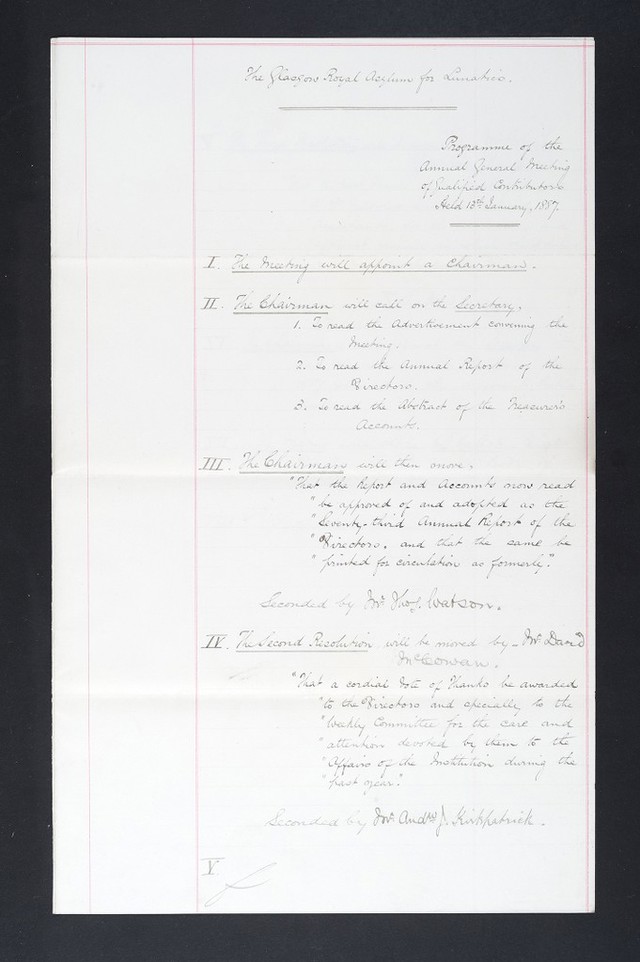 The Glasgow Royal Asylum for Lunatics.
Programme of the
Annual General Meeting
of Qualified Contributors
Held 13th January, 1887.
I. The Meeting will appoint a Chairman.
II. The Chairman will call on the Secretary,
1. To read the Advertisement convening the
Meeting.
2. To read the Annual Report of the
Directors.
3. To read the Abstract of the Treasurer's
Accounts.
III. The Chairman will then move.
"That the Report and Accounts now read
" be approved of and adopted as the
" Seventy-third Annual Report of the
" Directors, and that the same be
" printed for circulation as formerly."
Seconded by Mr. Thos. Watson.
IV. The Second Resolution will be moved by - Mr David
McCowan.
"That a cordial Vote of Thanks be awarded
" to the Directors and specially to the
" Weekly Committee for the care and
" attention devoted by them to the
" Affairs of the Institution during the
" past year."
Seconded by Mr. Andw J. Kirkpatrick.
V.